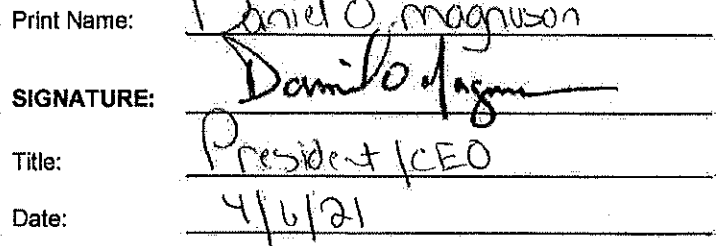 Print Name: Daniel O. Magnuson
SIGNATURE: Daniel O Magnuson
Title: President/CEO
Date: 4/6/21